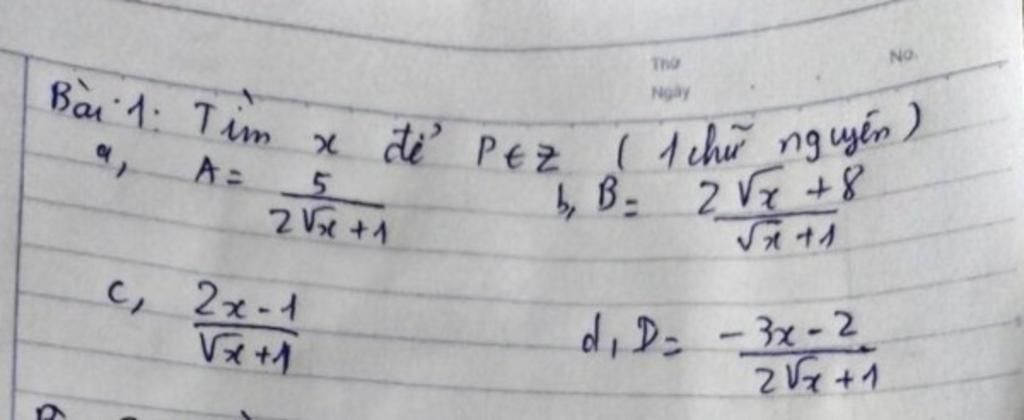 Thứ
No.
Ngày
Bài 1: Tìm x để P ∈ Z ( 1 chữ nguyên )
a, A = 5 / (2√x + 1)    b, B = (2√x + 8) / (√x + 1)
c, (2x - 1) / (√x + 1)    d, D = (-3x - 2) / (2√x + 1)